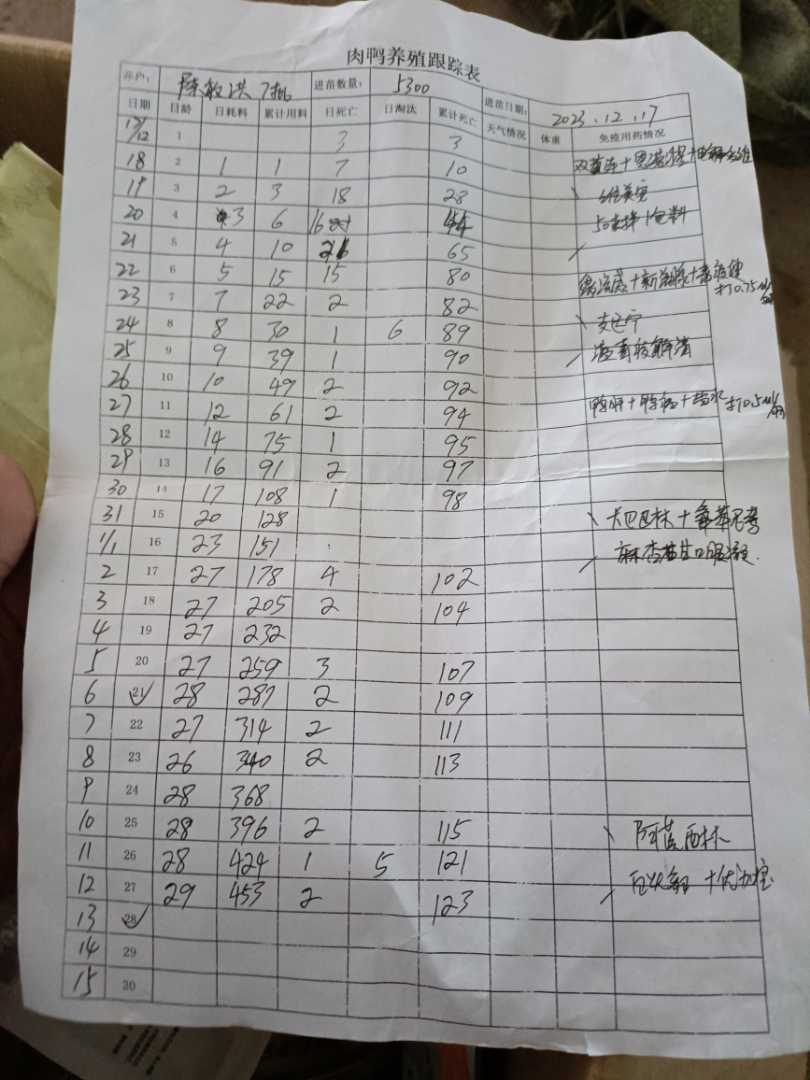 肉鸭养殖跟踪表
养户： 陈敏洪 7批 进苗数量： 5300 进苗日期： 2023.12.17
日期 日龄 日耗料 累计用料 日死亡 日淘汰 累计死亡 天气情况 体重 免疫用药情况
17/12 1 3 3
18 2 1 1 7 10 双黄连+
19 3 2 3 18 28
20 4 3 6 16 44
21 5 4 10 21 65
22 6 5 15 15 80
23 7 7 22 2 82 打0.75ml/
24 8 8 30 1 6 89
25 9 9 39 1 90
26 10 10 49 2 92
27 11 12 61 2 94 鸭肝+鸭瘟+ 打0.5ml/
28 12 14 75 1 95
29 13 16 91 2 97
30 14 17 108 1 98
31 15 20 128 卡巴匹林+
1/1 16 23 151 麻杏苗甘口服液
2 17 27 178 4 102
3 18 27 205 2 104
4 19 27 232
5 20 27 259 3 107
6 21 28 287 2 109
7 22 27 314 2 111
8 23 26 340 2 113
9 24 28 368
10 25 28 396 2 115 阿莫西林
11 26 28 424 1 5 121
12 27 29 453 2 123
13 28
14 29
15 30